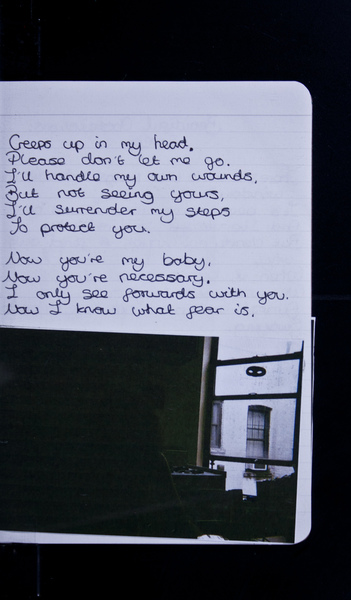 Creeps up in my head.
Please don't let me go.
I'll handle my own wounds,
But not seeing yours,
I'll surrender my steps
To protect you.
Now you're my baby,
Now you're necessary.
I only see forwards with you.
Now I know what fear is.